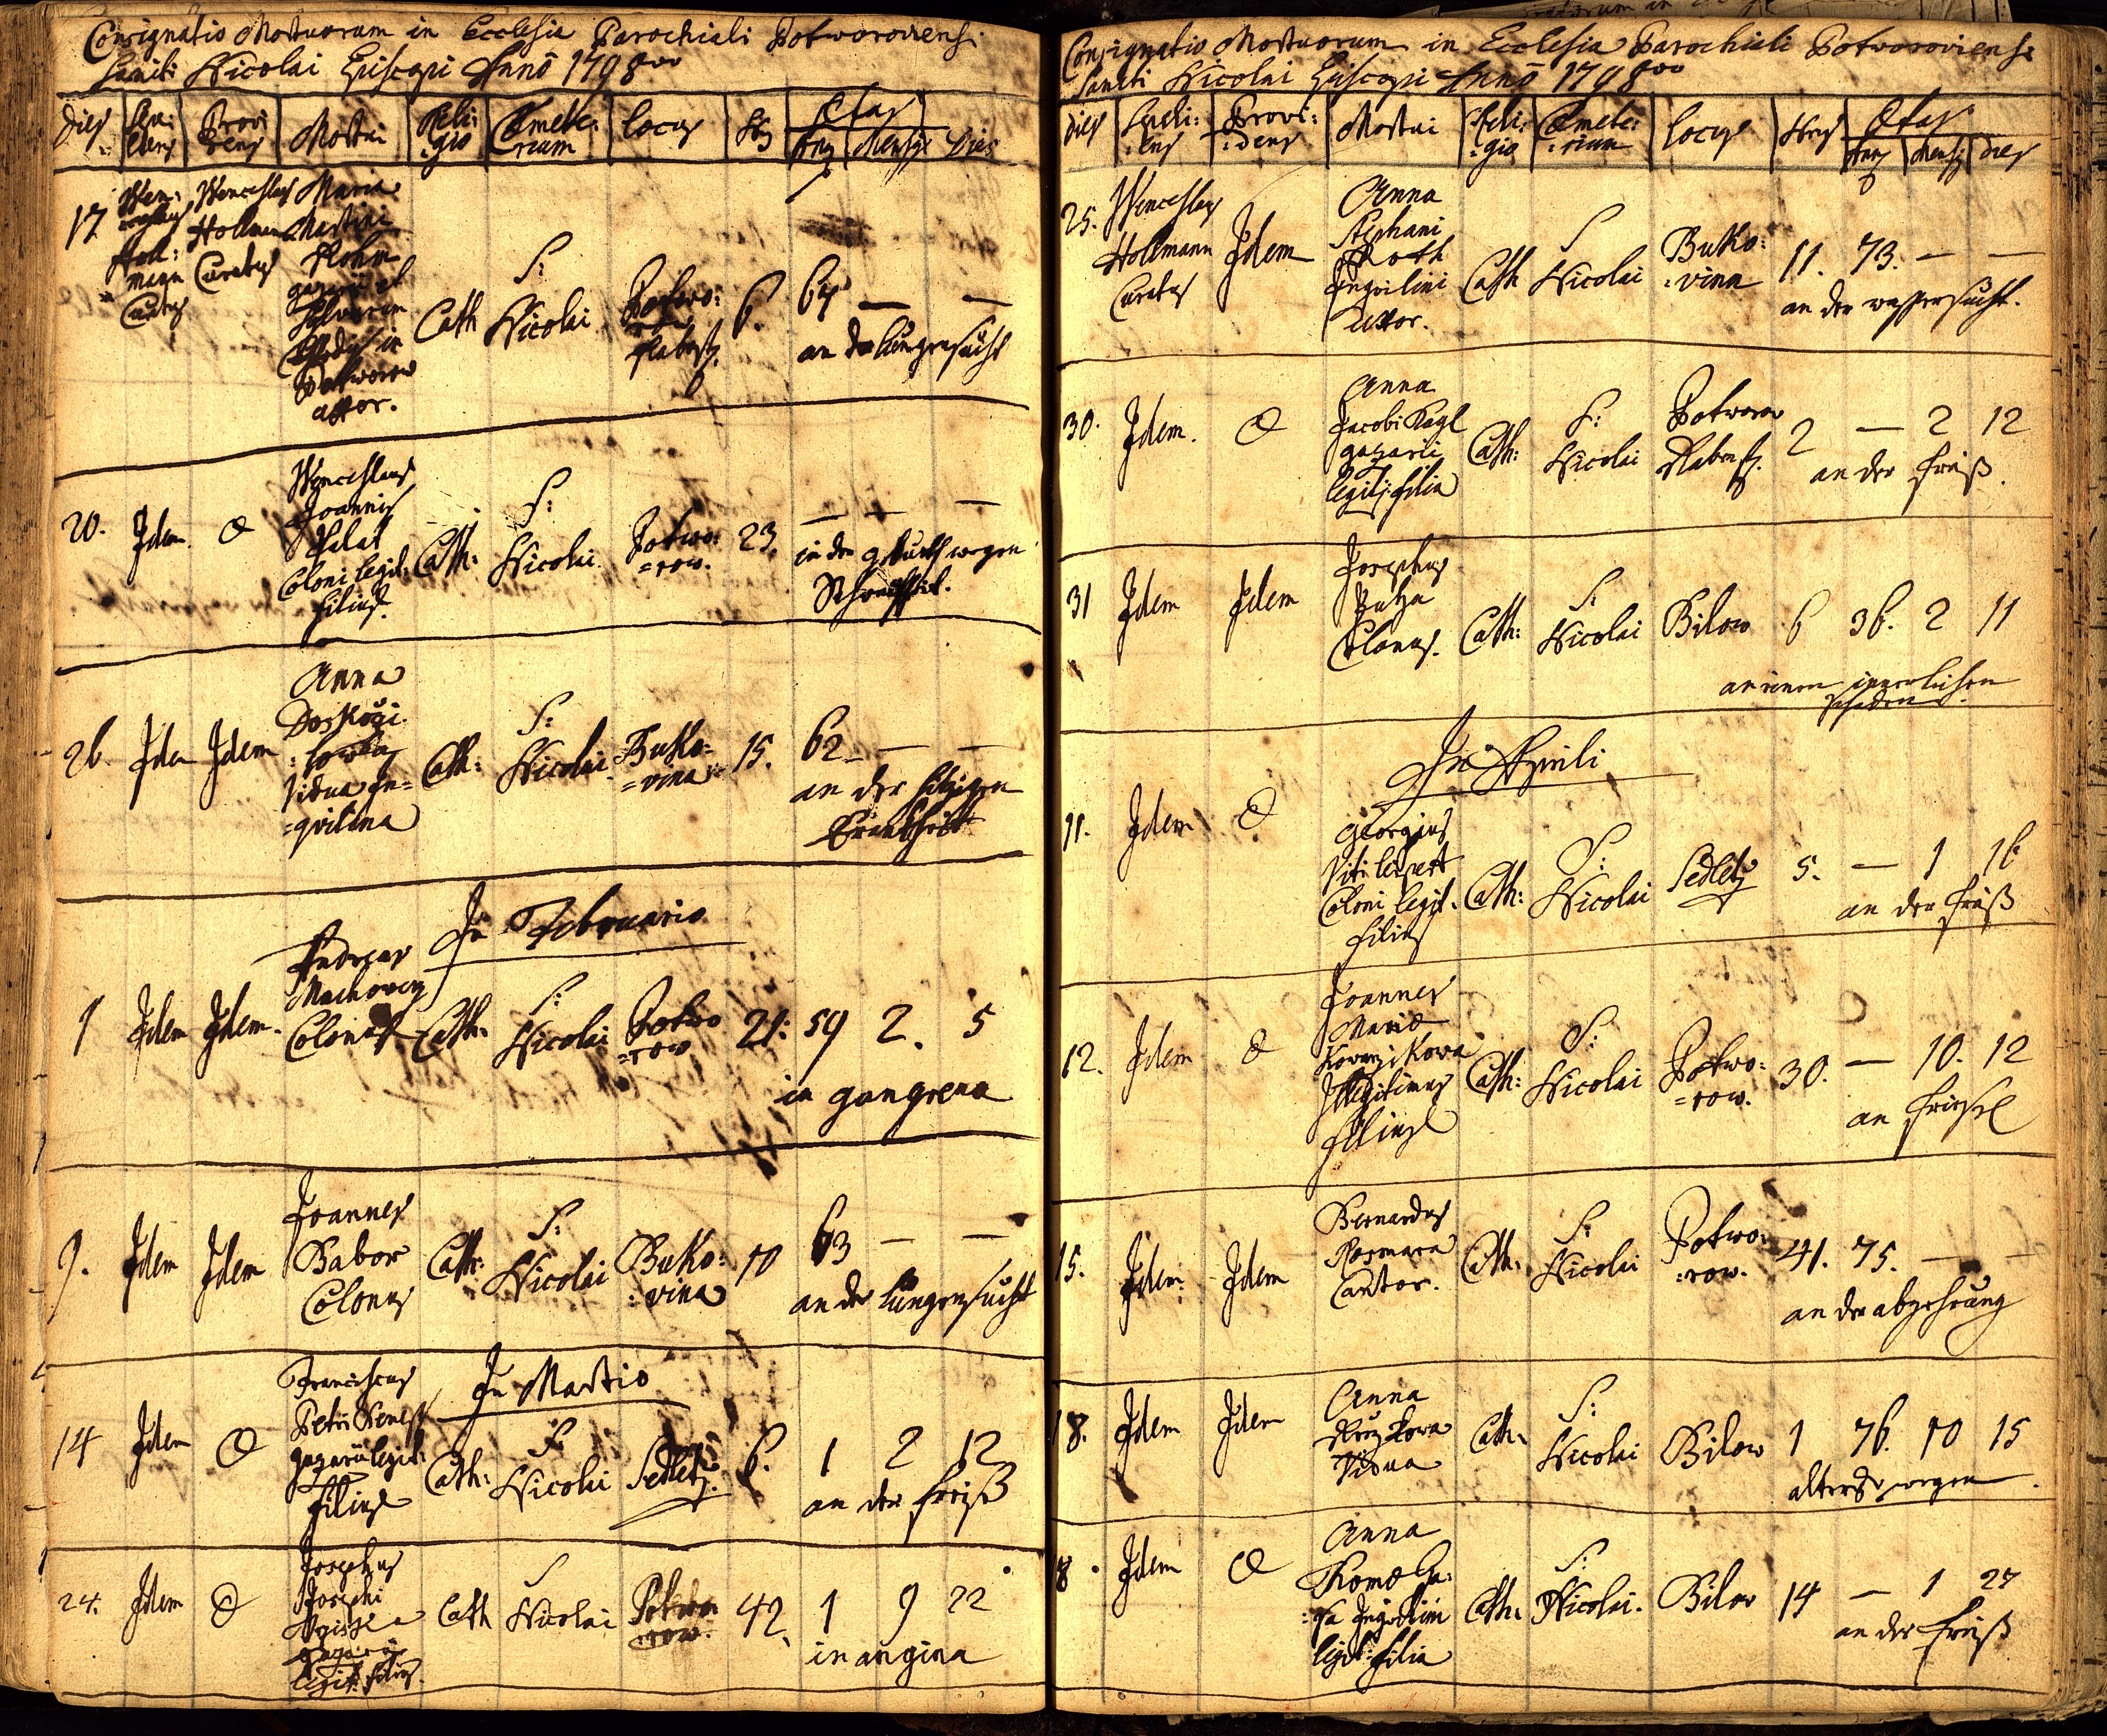 Consignatio Mortuorum in Ecclesia Parochiali Potworoviensi
Sancti Nicolai Episcopi Anno 1798
Dies Sepe: Provi Mortui Reli: Cæmete: Locus Hrs Ætas
liens dens gio rium Ann Mensis Dies
17 Wen: Wenceslaus Maria
ceslaus Hollmann Martini
Holl: Curatus
mann
Curatus
uxor.
Cath S: Nicolai Potwo: 6. 64 — —
row
an der lungensucht
20. Idem O Wenceslaus
Joannis
Coloni legit:
filius.
Cath: S: Nicolai Potwo: 23. — — —
=row.
in der geburth wegen
26. Idem Idem Anna
Vidua In=
=qvilina
Cath: S: Nicolai Buko: 15. 62 — —
=vina
an der hizigen
Krankheit
In Februario
1 Idem Idem Andreas
Machovecz
Colonus
Cath: S: Nicolai Potwo 21: 59 2. 5
=row
in gangrena
9. Idem Idem Joannes
Babor
Colonus
Cath: S: Nicolai Buko: 10 63 — —
:vina
an der lungensucht
In Martio
14 Idem O Franciscus
Petri
legit:
filius
Cath: S: Nicolai Sedletz. 6. 1 2 12
an der freiß
24. Idem O Josephus
Josephi
legit: filius.
Cath S Nicolai Potwo: 42. 1 9 22
row.
in angina
Consignatio Mortuorum in Ecclesia Parochiali Potworoviensi
Sancti Nicolai Episcopi Anno 1798
Dies Provi: Mortui Reli: Cæmete: Locus Hrs Ætas
:dens :gio :rium Ann Mensis dies
25. Wenceslaus
Hollmann
Curatus
Idem Anna
Stephani
Roth
Inqvilini
uxor.
Cath S Nicolai Buko: 11. 73. — —
:vina
an der wassersucht.
30. Idem. O Anna
Jacobi Kagl
gazarii
legit: filia
Cath: S: Nicolai Potworow 2 — 2 12
an der freiß.
31 Idem Idem Josephus
Colonus.
Cath: S: Nicolai Bilow 6 36. 2 11
an einem innerlichen
schaden.
In Aprili
11. Idem O Georgius
Viti
Coloni legit.
filius
Cath: S: Nicolai Sedletz 5. — 1 16
an der freiß
12. Idem O Joannes
Mariæ
Illegitimus
filius
Cath: S: Nicolai Potwo: 30. — 10. 12
=row.
an friesel
15. Idem Idem Bernardus
Cantor.
Cath: S: Nicolai Potwo: 41. 75. — —
:row.
an der abzehrung
18. Idem Idem Anna
Vidua
Cath: S: Nicolai Bilow 1 76. 10 15
alters wegen.
18. Idem O Anna
Thomæ
Inqvilini
legit: filia
Cath: S: Nicolai. Bilow 14 — 1 27
an der freiß